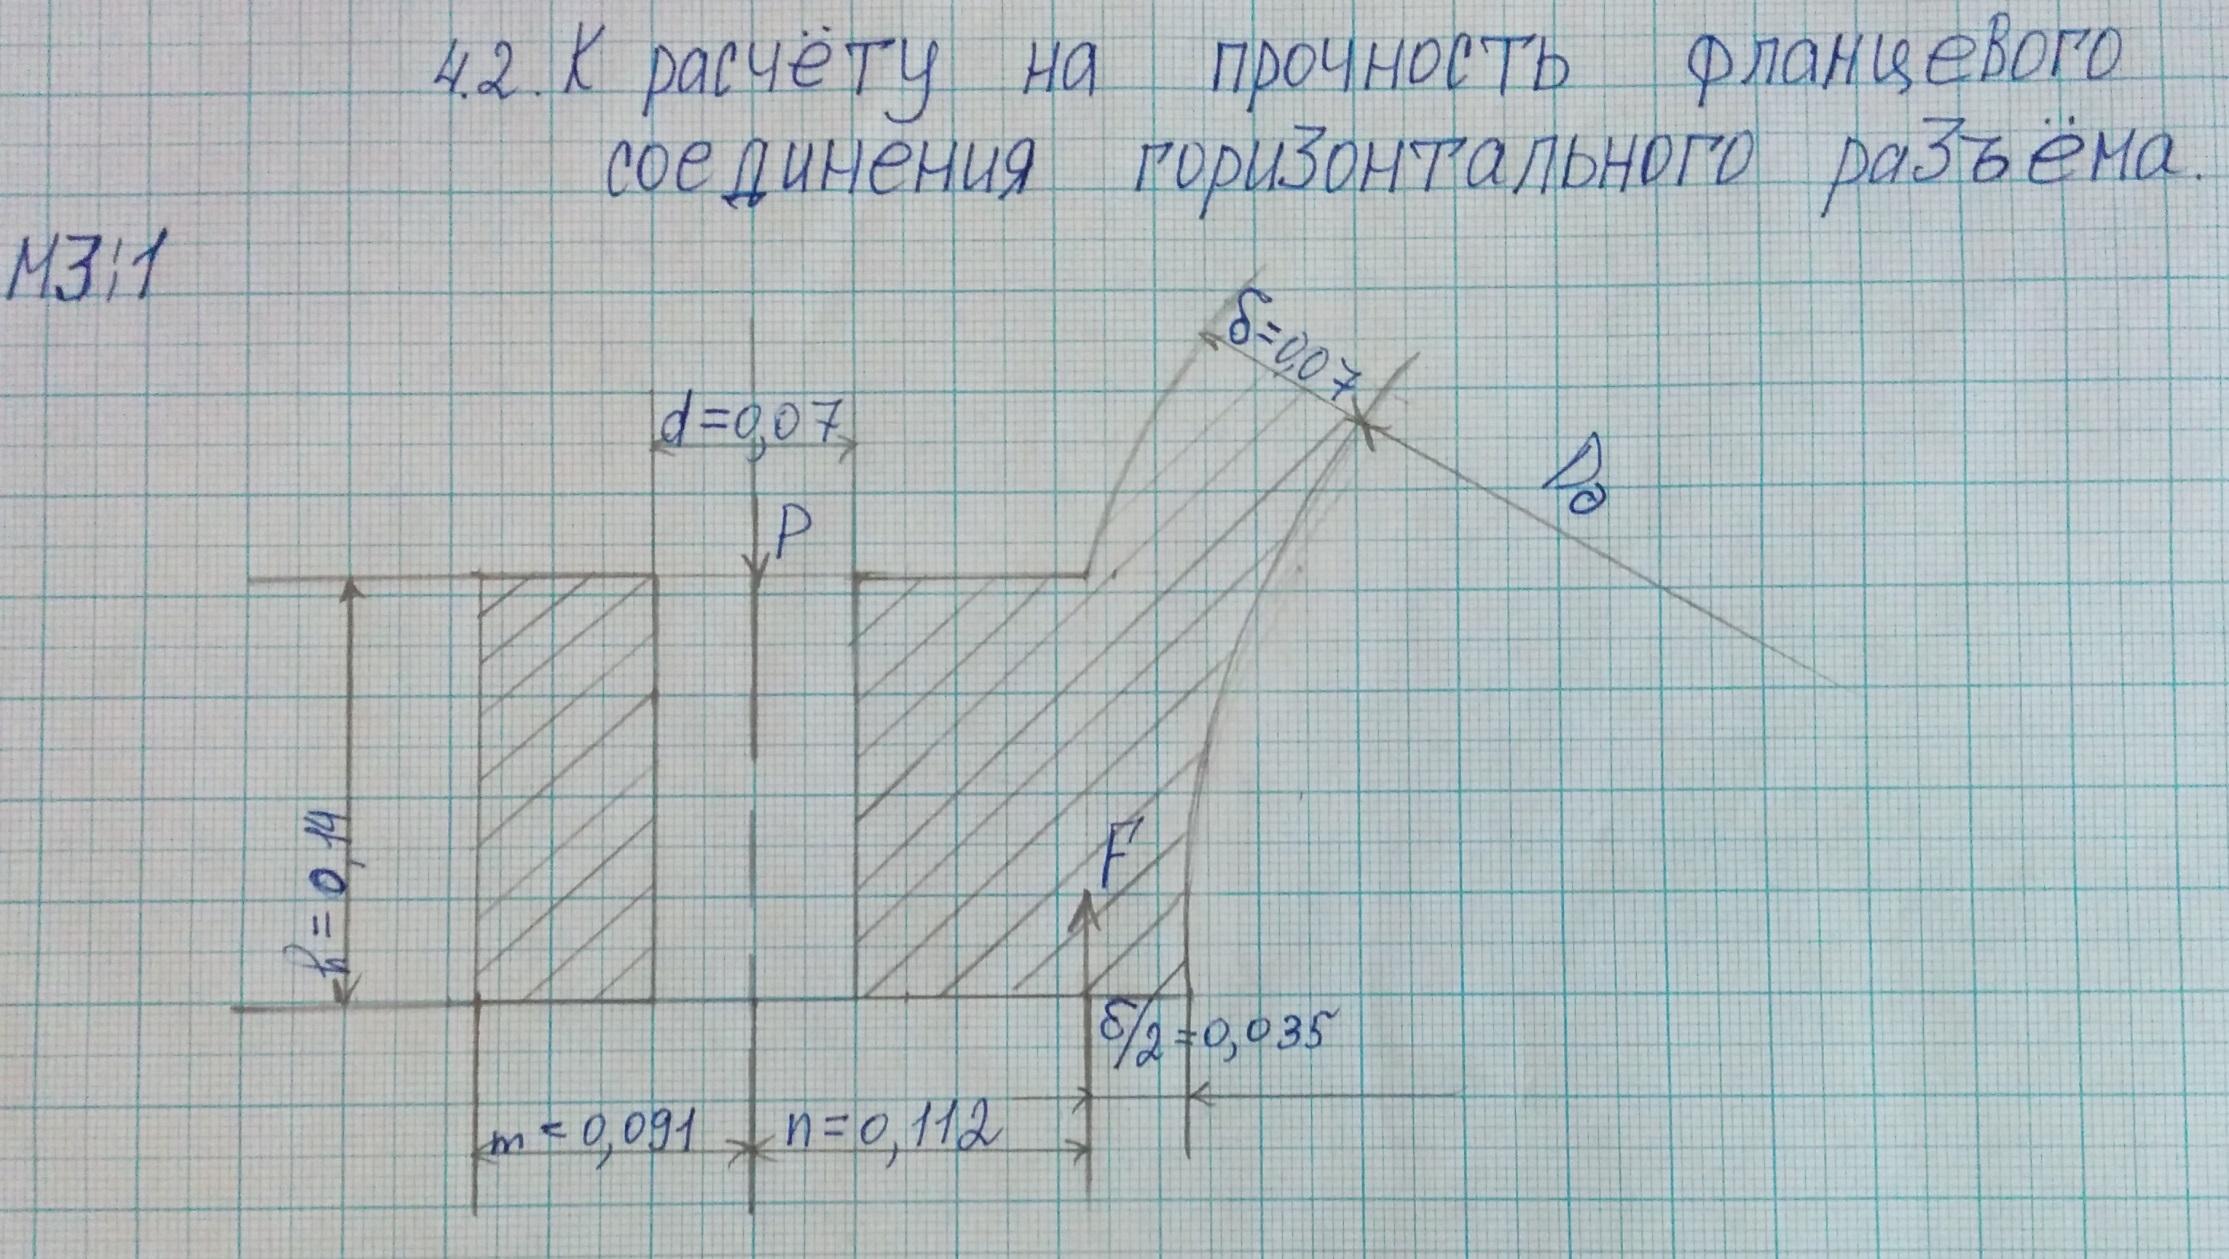 4.2. К расчёту на прочность фланцевого
соединения горизонтального разъёма.
М3:1
δ=0,07
d=0,07
P
h=0,14
F
δ/2=0,035
m=0,091
n=0,112